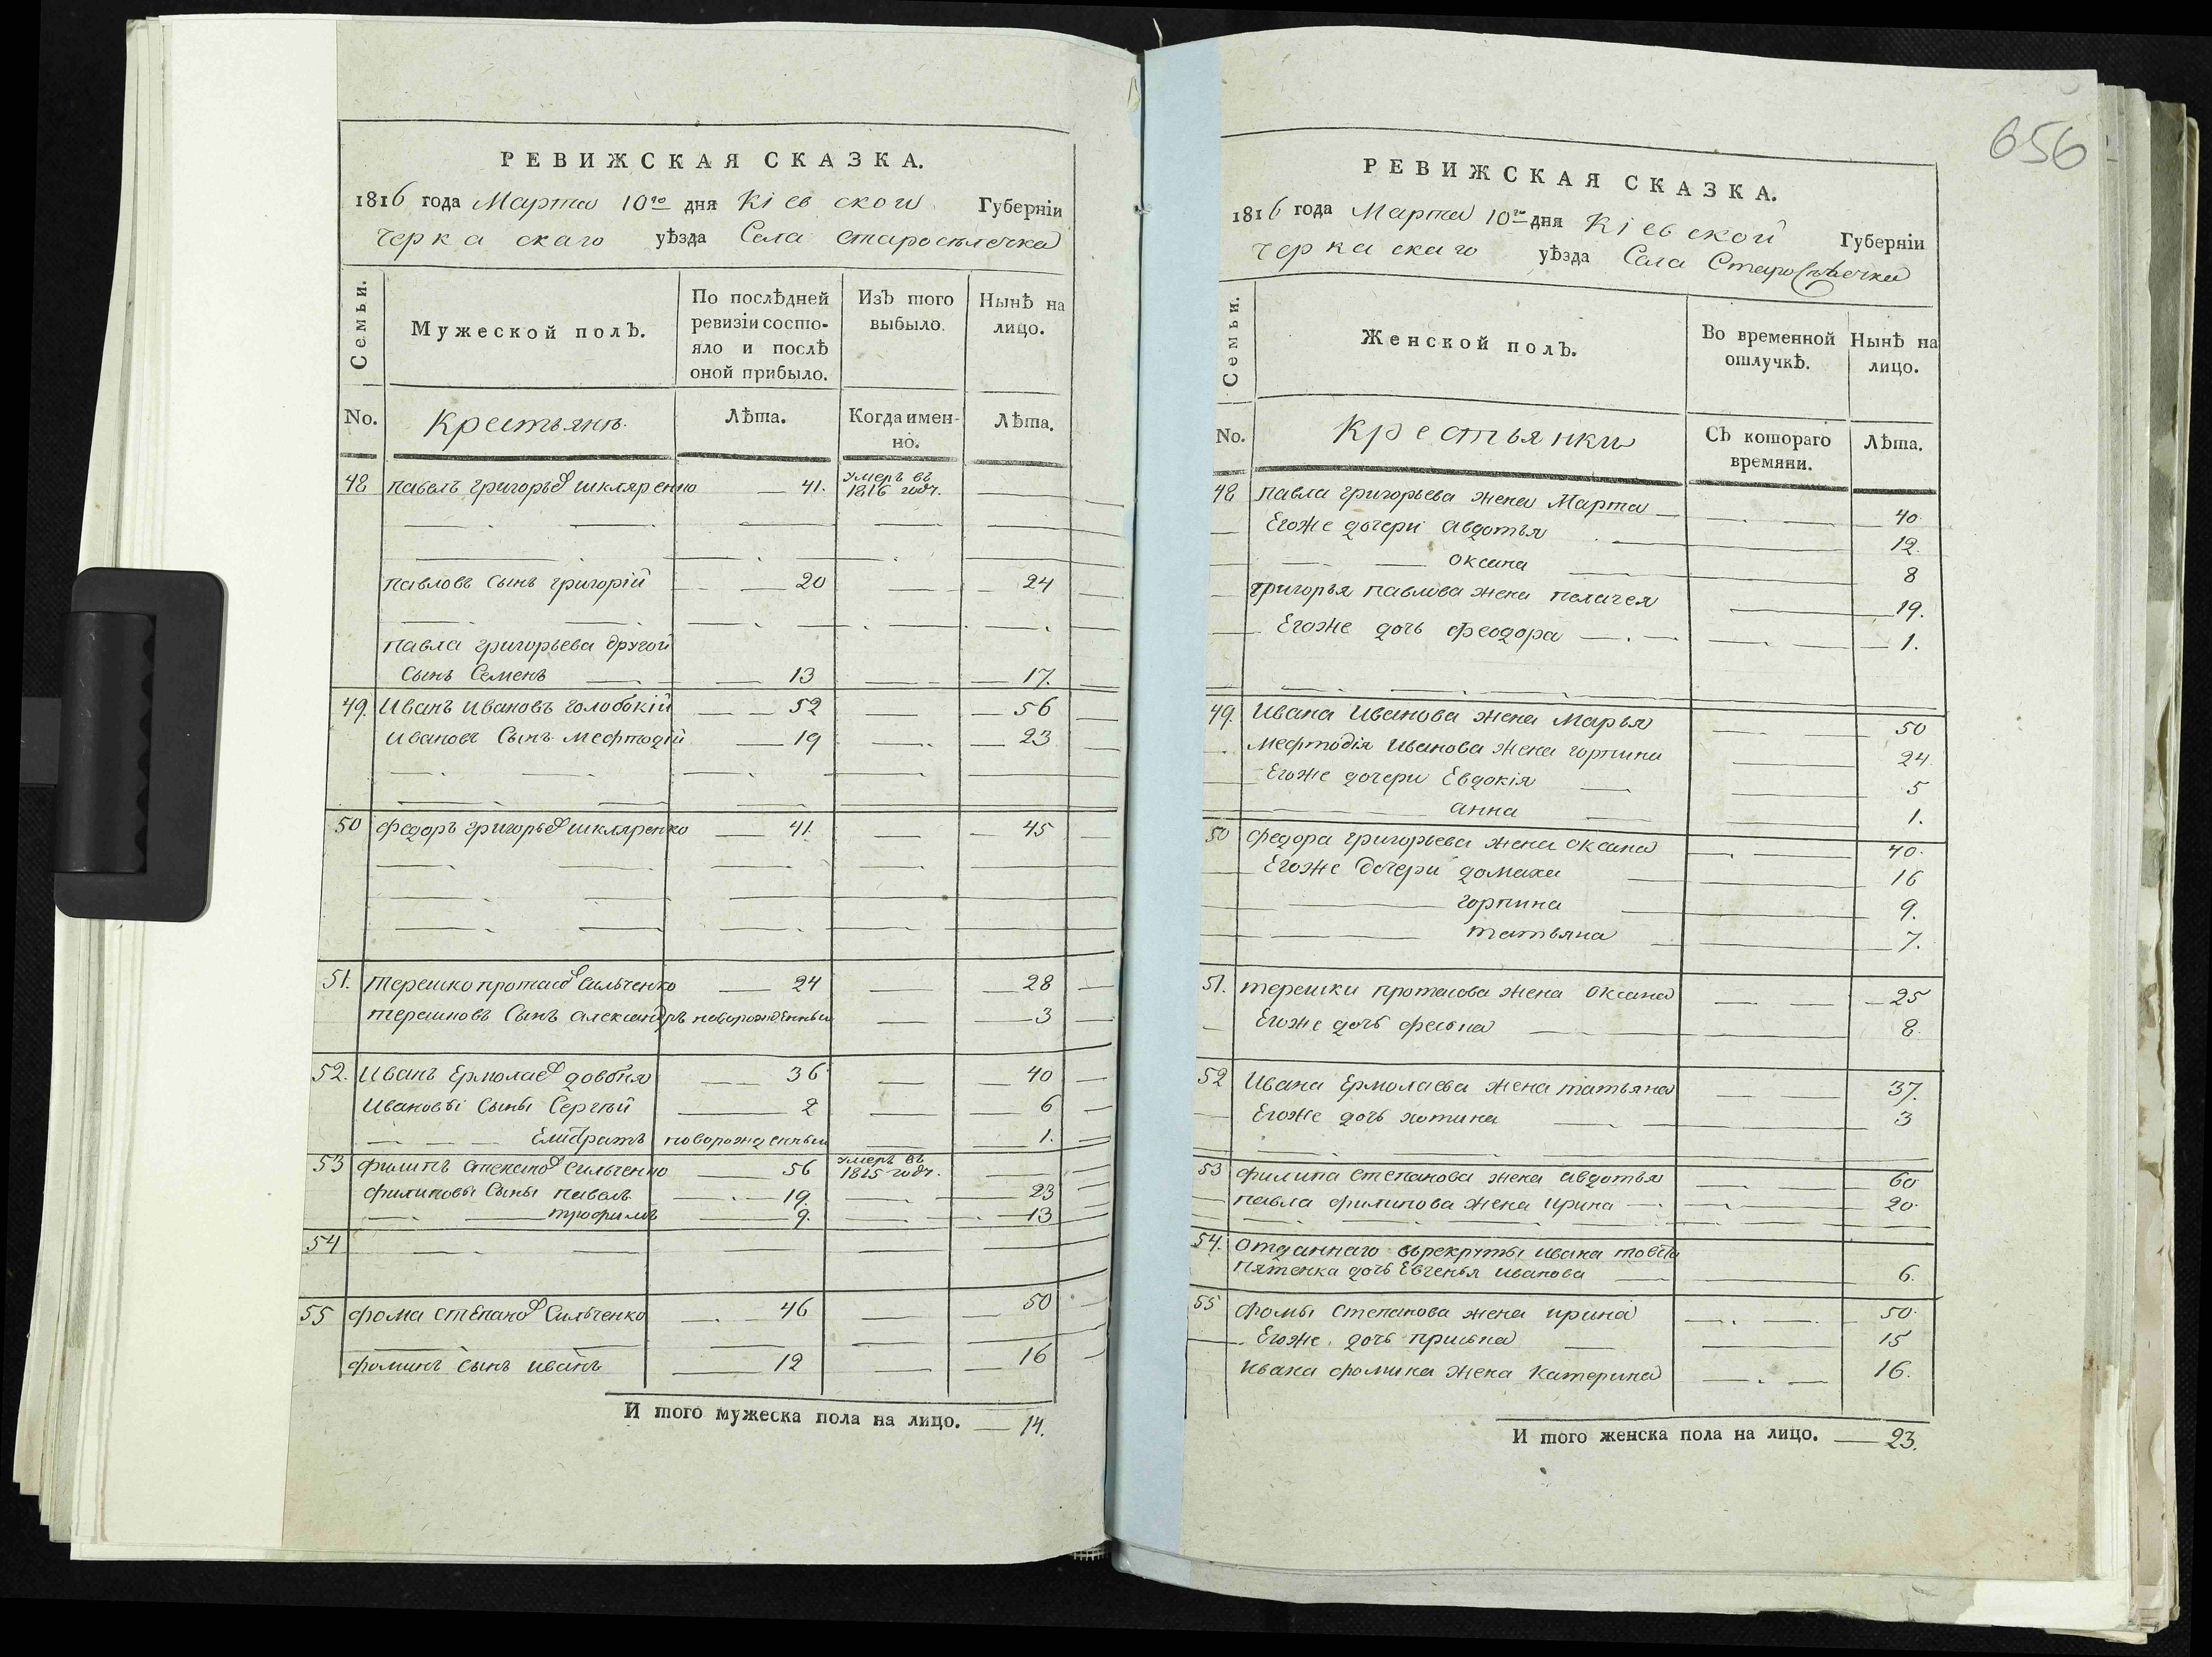 РЕВИЖСКАЯ СКАЗКА.
1816 года Марта 10го дня Кіевской Губерніи
Черкаскаго уѣзда Села Старосѣлечка
Семьи.
Мужеской полЪ.
По послѣдней ревизіи состояло и послѣ оной прибыло.
ИзЪ того выбыло.
НынѢ на лицо.
No.
Крестьянъ
ЛѢта.
Когда именно.
ЛѢта.
48 павелъ григорьев шкляренко 41. умеръ въ 1816 году.
павловъ сынъ григорій 20 24
павла григорьева другой
сынъ Семенъ 13 17.
49. Иванъ Ивановъ голобокій 52 56
Ивановъ Сынъ мефтодій 19 23
50 федоръ григорьев шкляренко 41. 45
51. терешко протасов Сильченко 24 28
терешковъ Сынъ александръ новорожденный 3
52. Иванъ Ермолаев довбня 36 40
Ивановы Сыны Сергѣй 2 6
новорожденный 1.
53 филипъ степанов Сильченко 56 умеръ въ 1815 году.
филиповы Сыны павелъ 19. 23
трофимъ 9. 13
54
55 фома степанов Сильченко 46 50
фоминъ сынъ иванъ 12 16
И того мужеска пола на лицо. 14.
656
РЕВИЖСКАЯ СКАЗКА.
1816 года Марта 10го дня Кіевской Губерніи
Черкаскаго уѣзда Села Старосѣлечка
Семьи.
Женской полЪ.
Во временной отлучкѢ.
НынѢ на лицо.
No.
Крестьянки
СЪ котораго времяни.
ЛѢта.
48 павла григорьева жена Марта 40.
Егоже дочери Авдотья 12.
оксана 8
григорья павлова жена пелагея 19.
Егоже дочь феодора 1.
49. Ивана Иванова жена Марья 50
мефтодія Иванова жена горпина 24
Егоже дочери Евдокія 5
анна 1.
50 федора григорьева жена оксана 40.
Егоже дочери домаха 16
горпина 9.
татьяна 7.
51. терешки протасова жена оксана 25
Егоже дочь фесьна 8.
52 Ивана Ермолаева жена татьяна 37.
Егоже дочь хотина 3
53 филипа степанова жена авдотья 60
павла филипова жена ирина 20.
54. отданнаго въ рекруты ивана
пятенка дочь Евгенья иванова 6.
55 фомы степанова жена ирина 50.
Егоже дочь присьна 15
ивана фомина жена катерина 16.
И того женска пола на лицо. 23.